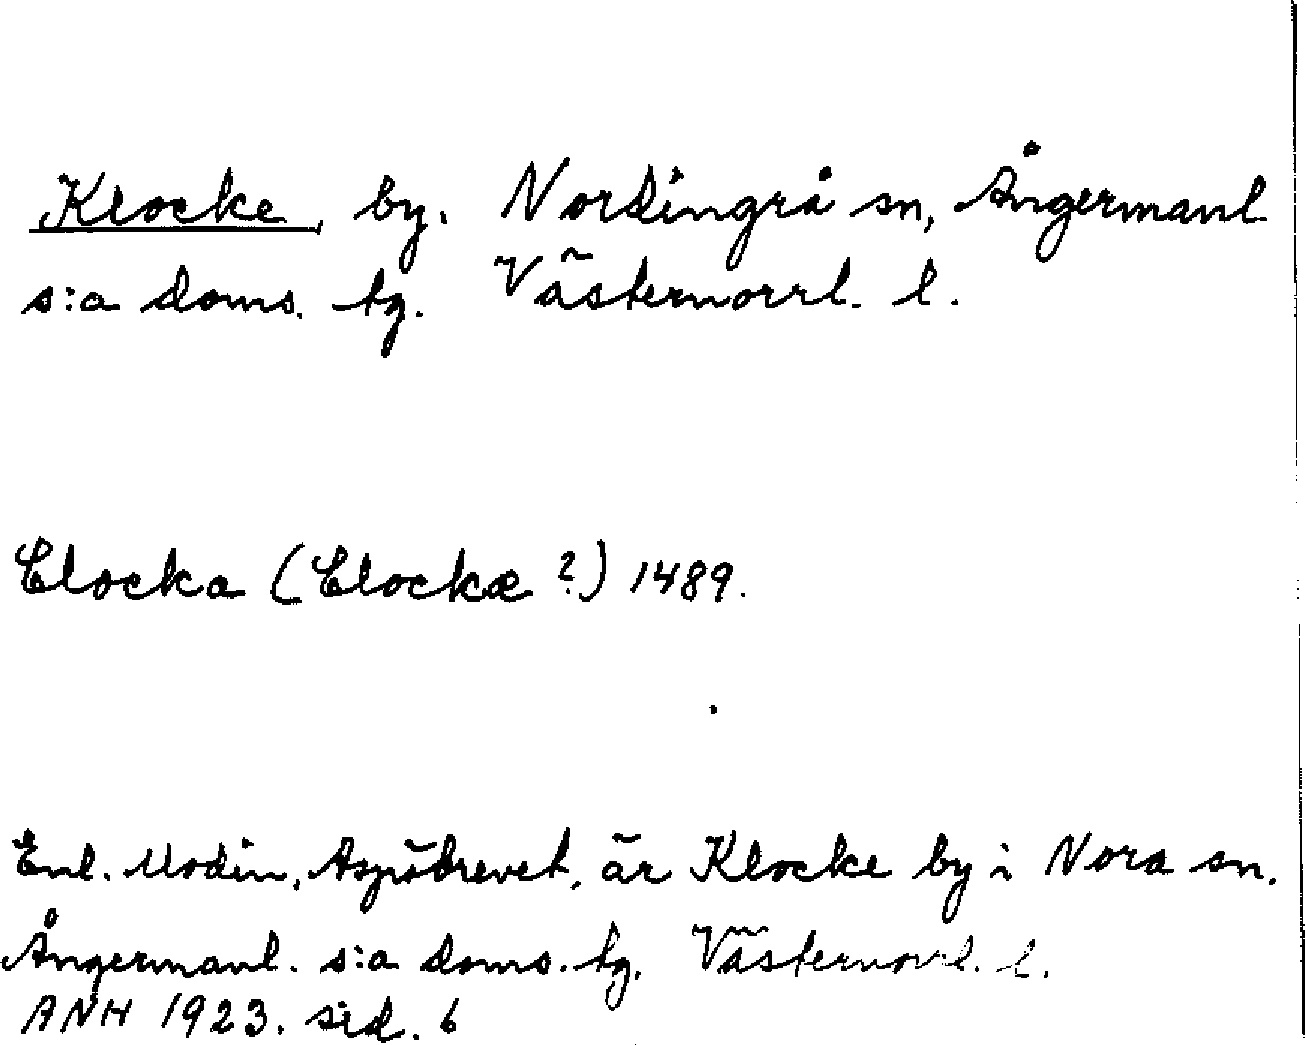 Klocke, by. Nordingrå sn, Ångermanl
s:a doms. tg. Västernorrl. l.
Clocka (Clockæ ?) 1489.
Enl. Modin, Aspöbrevet, är Klocke by i Nora sn.
Ångermanl. s:a doms. tg. Västernorrl. l.
ANH 1923. sid. 6